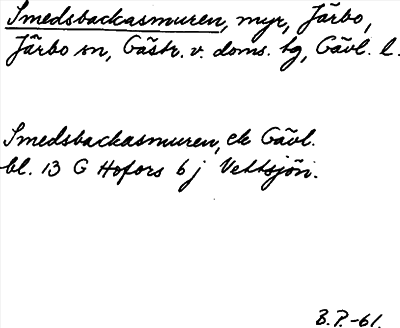 Smedsbackasmuren, myr, Järbo,
Järbo sn, Gästr. v. doms. tg, Gävl. l.
Smedsbackasmuren, ek Gävl.
bl. 13 G Hofors 6 j Vettsjön.
B.P.-61.